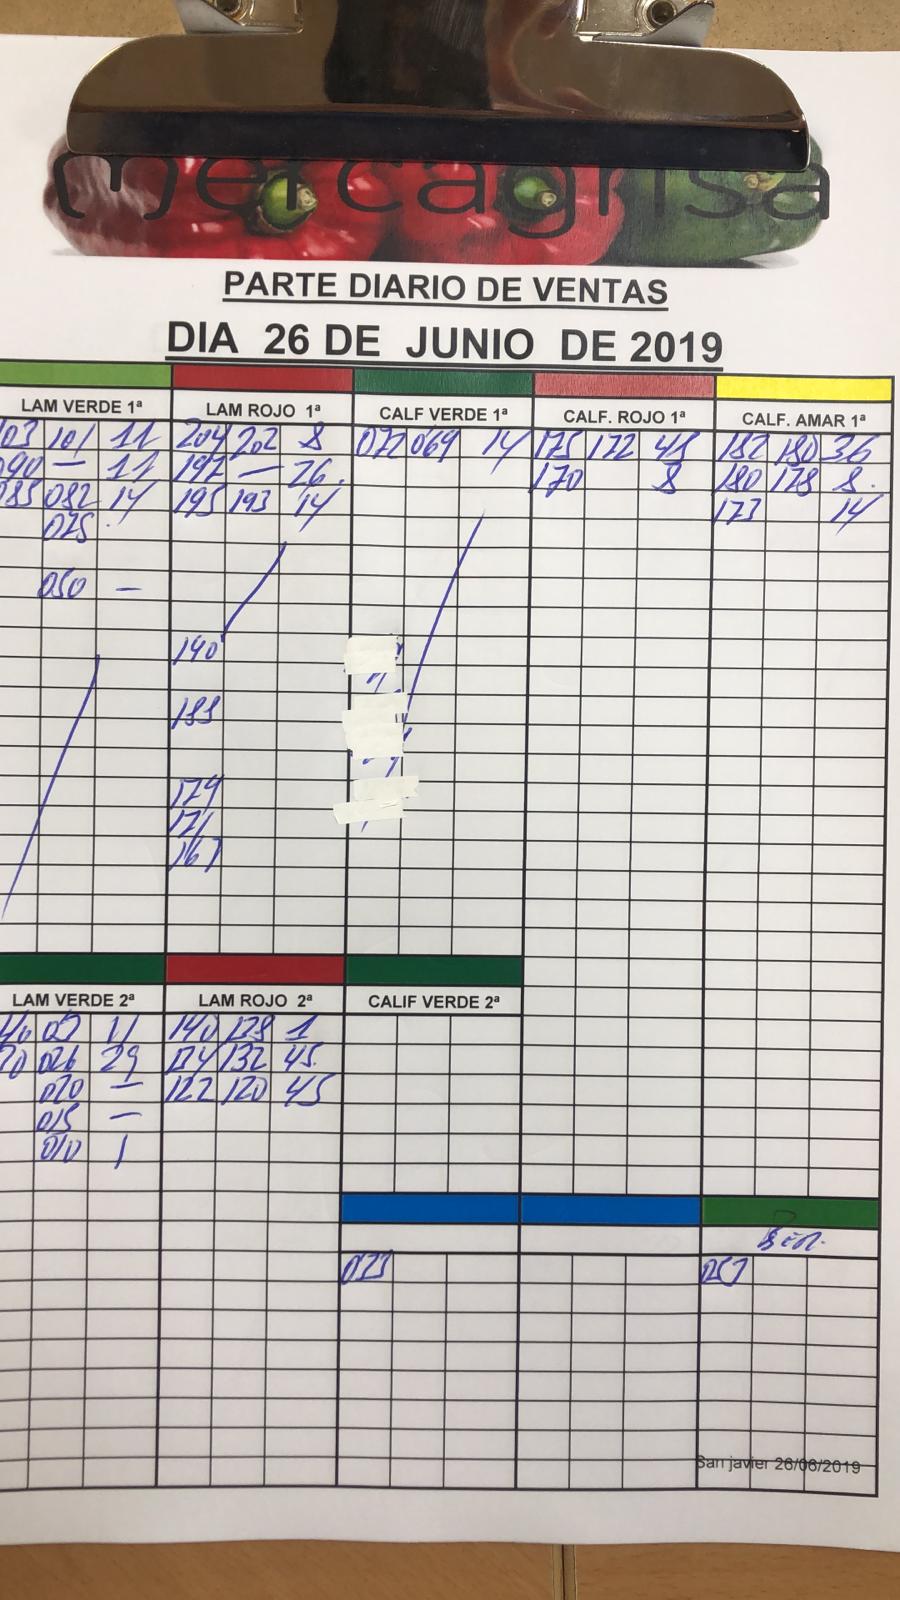 mercagrisa
PARTE DIARIO DE VENTAS
DIA 26 DE JUNIO DE 2019
LAM VERDE 1ª LAM ROJO 1ª CALF VERDE 1ª CALF. ROJO 1ª CALF. AMAR 1ª
03 101 11 204 202 8 072 069 14 175 172 45 182 180 36
090 — 11 197 — 26. 170 8 180 178 8.
085 082 14 195 193 14 173 14
075
050 —
190
183
179
171
167
LAM VERDE 2ª LAM ROJO 2ª CALIF VERDE 2ª
11 140 138 1
026 29 134 132 45.
020 — 122 120 45
015 —
010 1
BER.
073 057
San javier 26/06/2019